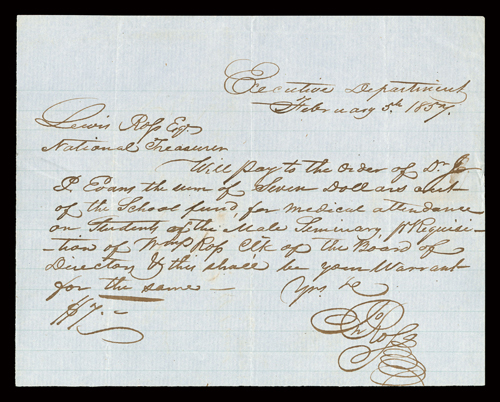 Executive Department
February 5th 1857.
Lewis Ross Esq.
National Treasurer
Will pay to the order of Dr J
P. Evans the sum of Seven Dollars out
of the School fund, for medical attendance
on Students of the Male Seminary, pr Requisi-
tion of Wm P Ross Clk of the Board of
Directors & this shall be your Warrant
for the same —
Yrs &c
$7.—
Jn Ross